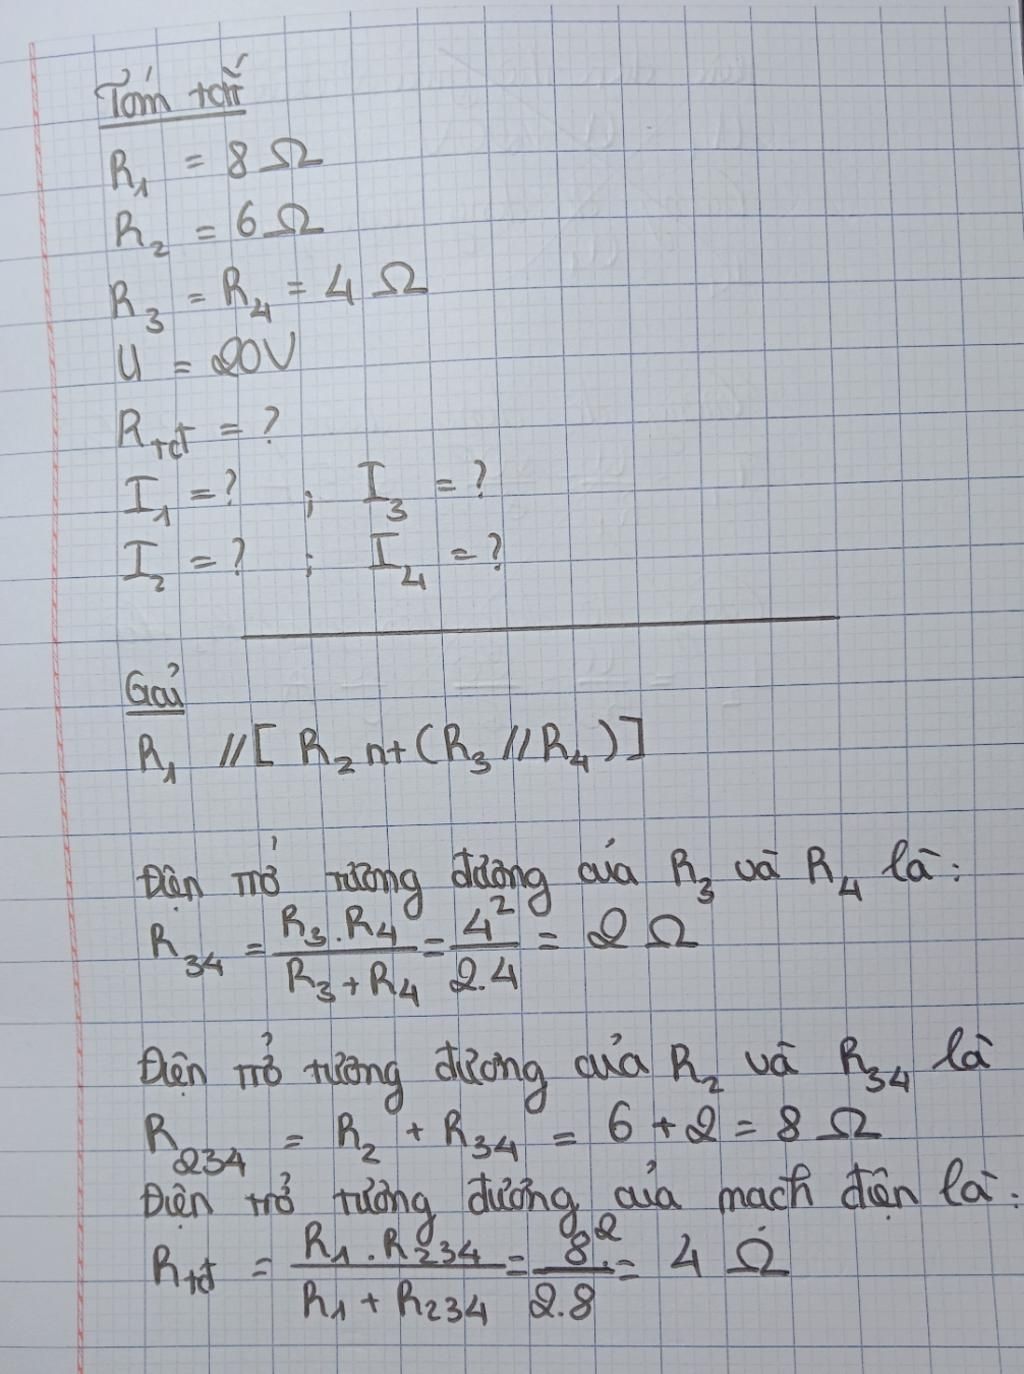 Tóm tắt
R₁ = 8 Ω
R₂ = 6 Ω
R₃ = R₄ = 4 Ω
U = 20V
Rtđ = ?
I₁ = ? ; I₃ = ?
I₂ = ? ; I₄ = ?
Giải
R₁ // [ R₂ nt (R₃ // R₄) ]
Điện trở tương đương của R₃ và R₄ là :
R₃₄ = R₃.R₄ / R₃ + R₄ = 4² / 2.4 = 2 Ω
Điện trở tương đương của R₂ và R₃₄ là
R₂₃₄ = R₂ + R₃₄ = 6 + 2 = 8 Ω
Điện trở tương đương của mạch điện là :
Rtđ = R₁.R₂₃₄ / R₁ + R₂₃₄ = 8² / 2.8 = 4 Ω